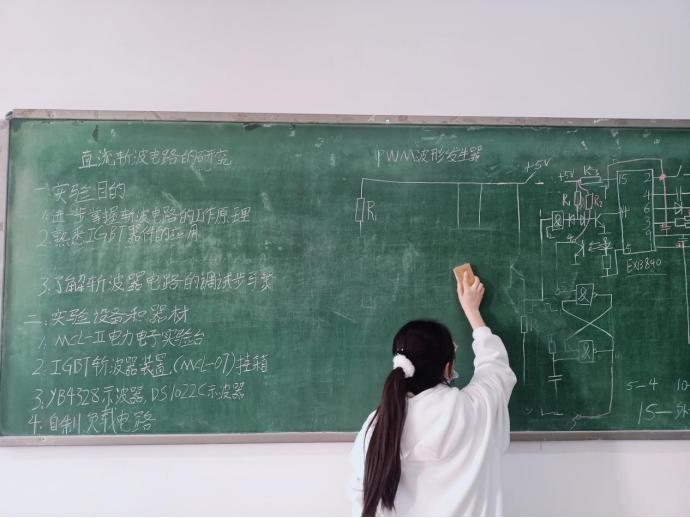 直流斩波电路的研究
一 实验目的
1.进一步掌握斩波电路的工作原理
2.熟悉IGBT器件的应用
3.了解斩波器电路的调试步与策
二、实验设备和器材
1. MCL-II电力电子实验台
2. IGBT斩波器装置(MCL-07)挂箱
3. YB4328示波器、DS1022C示波器
4. 自制负载电路
PWM波形发生器
+5V
R1
+5V
R1
R3
15
2
4
6
5
9
EXB840
&
&
&
5-4
10-
15-